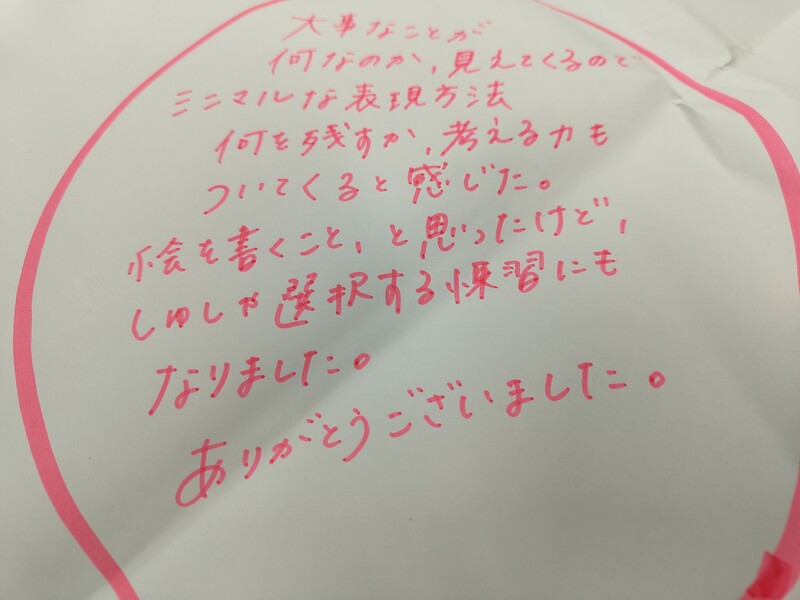 大事なことが
何なのか、見えてくるので
ミニマルな表現方法
何を残すか、考える力も
ついてくると感じた。
絵を書くこと、と思ったけど、
しゅしゃ選択する練習にも
なりました。
ありがとうございました。